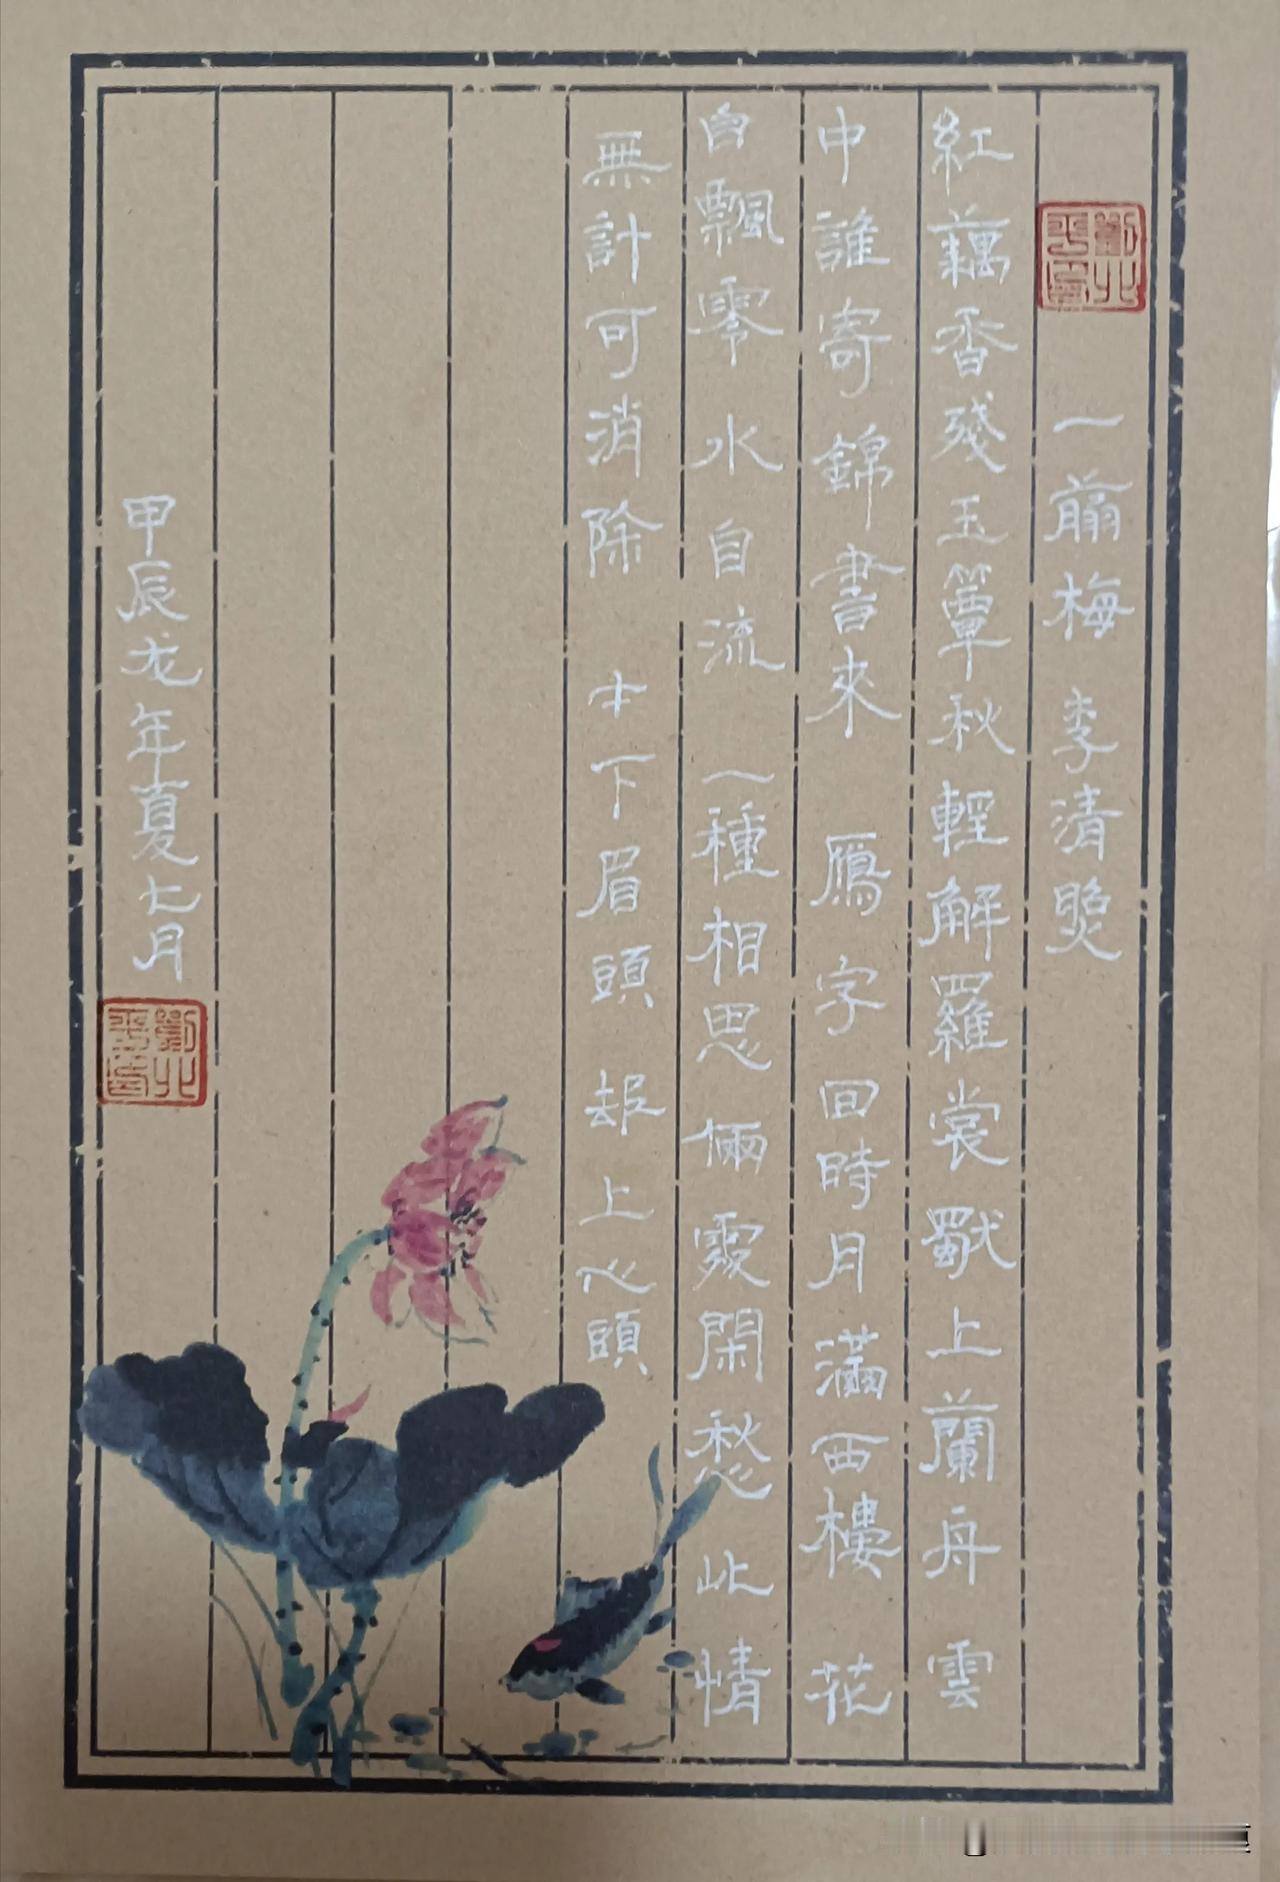 一翦梅 李清照
紅藕香殘玉簟秋輕解羅裳獨上蘭舟雲
中誰寄錦書來 鴈字回時月滿西樓 花
自飄零水自流 一種相思倆處閑愁此情
無計可消除 才下眉頭 却上心頭
甲辰龙年夏七月